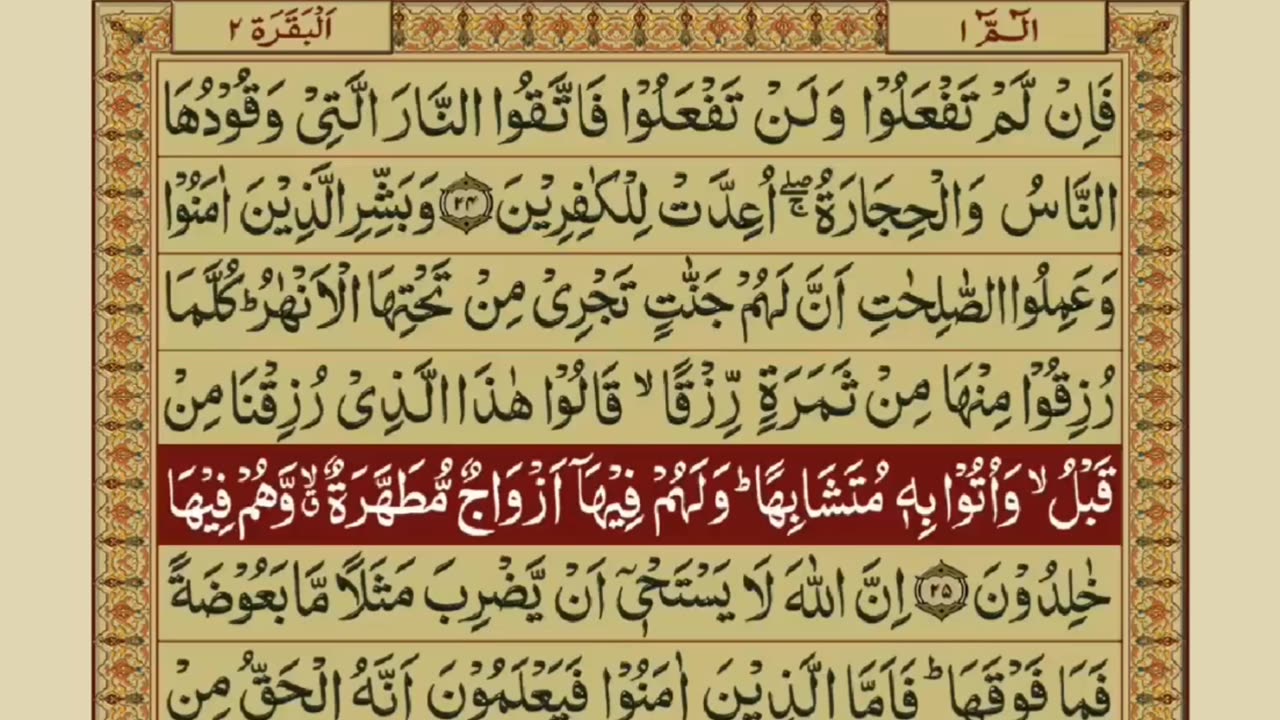 الٓـمّٓ ۱
اَلْبَقَرَة ۲
فَاِنْ لَّمْ تَفْعَلُوْا وَلَنْ تَفْعَلُوْا فَاتَّقُوا النَّارَ الَّتِىْ وَقُوْدُهَا
النَّاسُ وَالْحِجَارَةُ ۖۚ اُعِدَّتْ لِلْكٰفِرِيْنَ ۲۴ وَبَشِّرِ الَّذِيْنَ اٰمَنُوْا
وَعَمِلُوا الصّٰلِحٰتِ اَنَّ لَهُمْ جَنّٰتٍ تَجْرِىْ مِنْ تَحْتِهَا الْاَنْهٰرُ ؕ كُلَّمَا
رُزِقُوْا مِنْهَا مِنْ ثَمَرَةٍ رِّزْقًا ۙ قَالُوْا هٰذَا الَّذِىْ رُزِقْنَا مِنْ
قَبْلُ ۙ وَاُتُوْا بِهٖ مُتَشَابِهًا ؕ وَلَهُمْ فِيْهَآ اَزْوَاجٌ مُّطَهَّرَةٌ ۙۗ وَّهُمْ فِيْهَا
خٰلِدُوْنَ ۲۵ اِنَّ اللّٰهَ لَا يَسْتَحْىٖٓ اَنْ يَّضْرِبَ مَثَلًا مَّا بَعُوْضَةً
فَمَا فَوْقَهَا ؕ فَاَمَّا الَّذِيْنَ اٰمَنُوْا فَيَعْلَمُوْنَ اَنَّهُ الْحَقُّ مِنْ